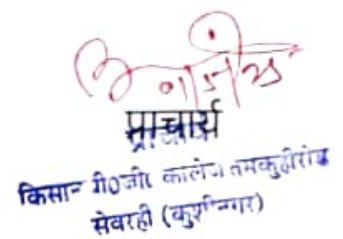 प्राचार्य
किसान पी०जी० कालेज तमकुहीरोड
सेवरही (कुशीनगर)